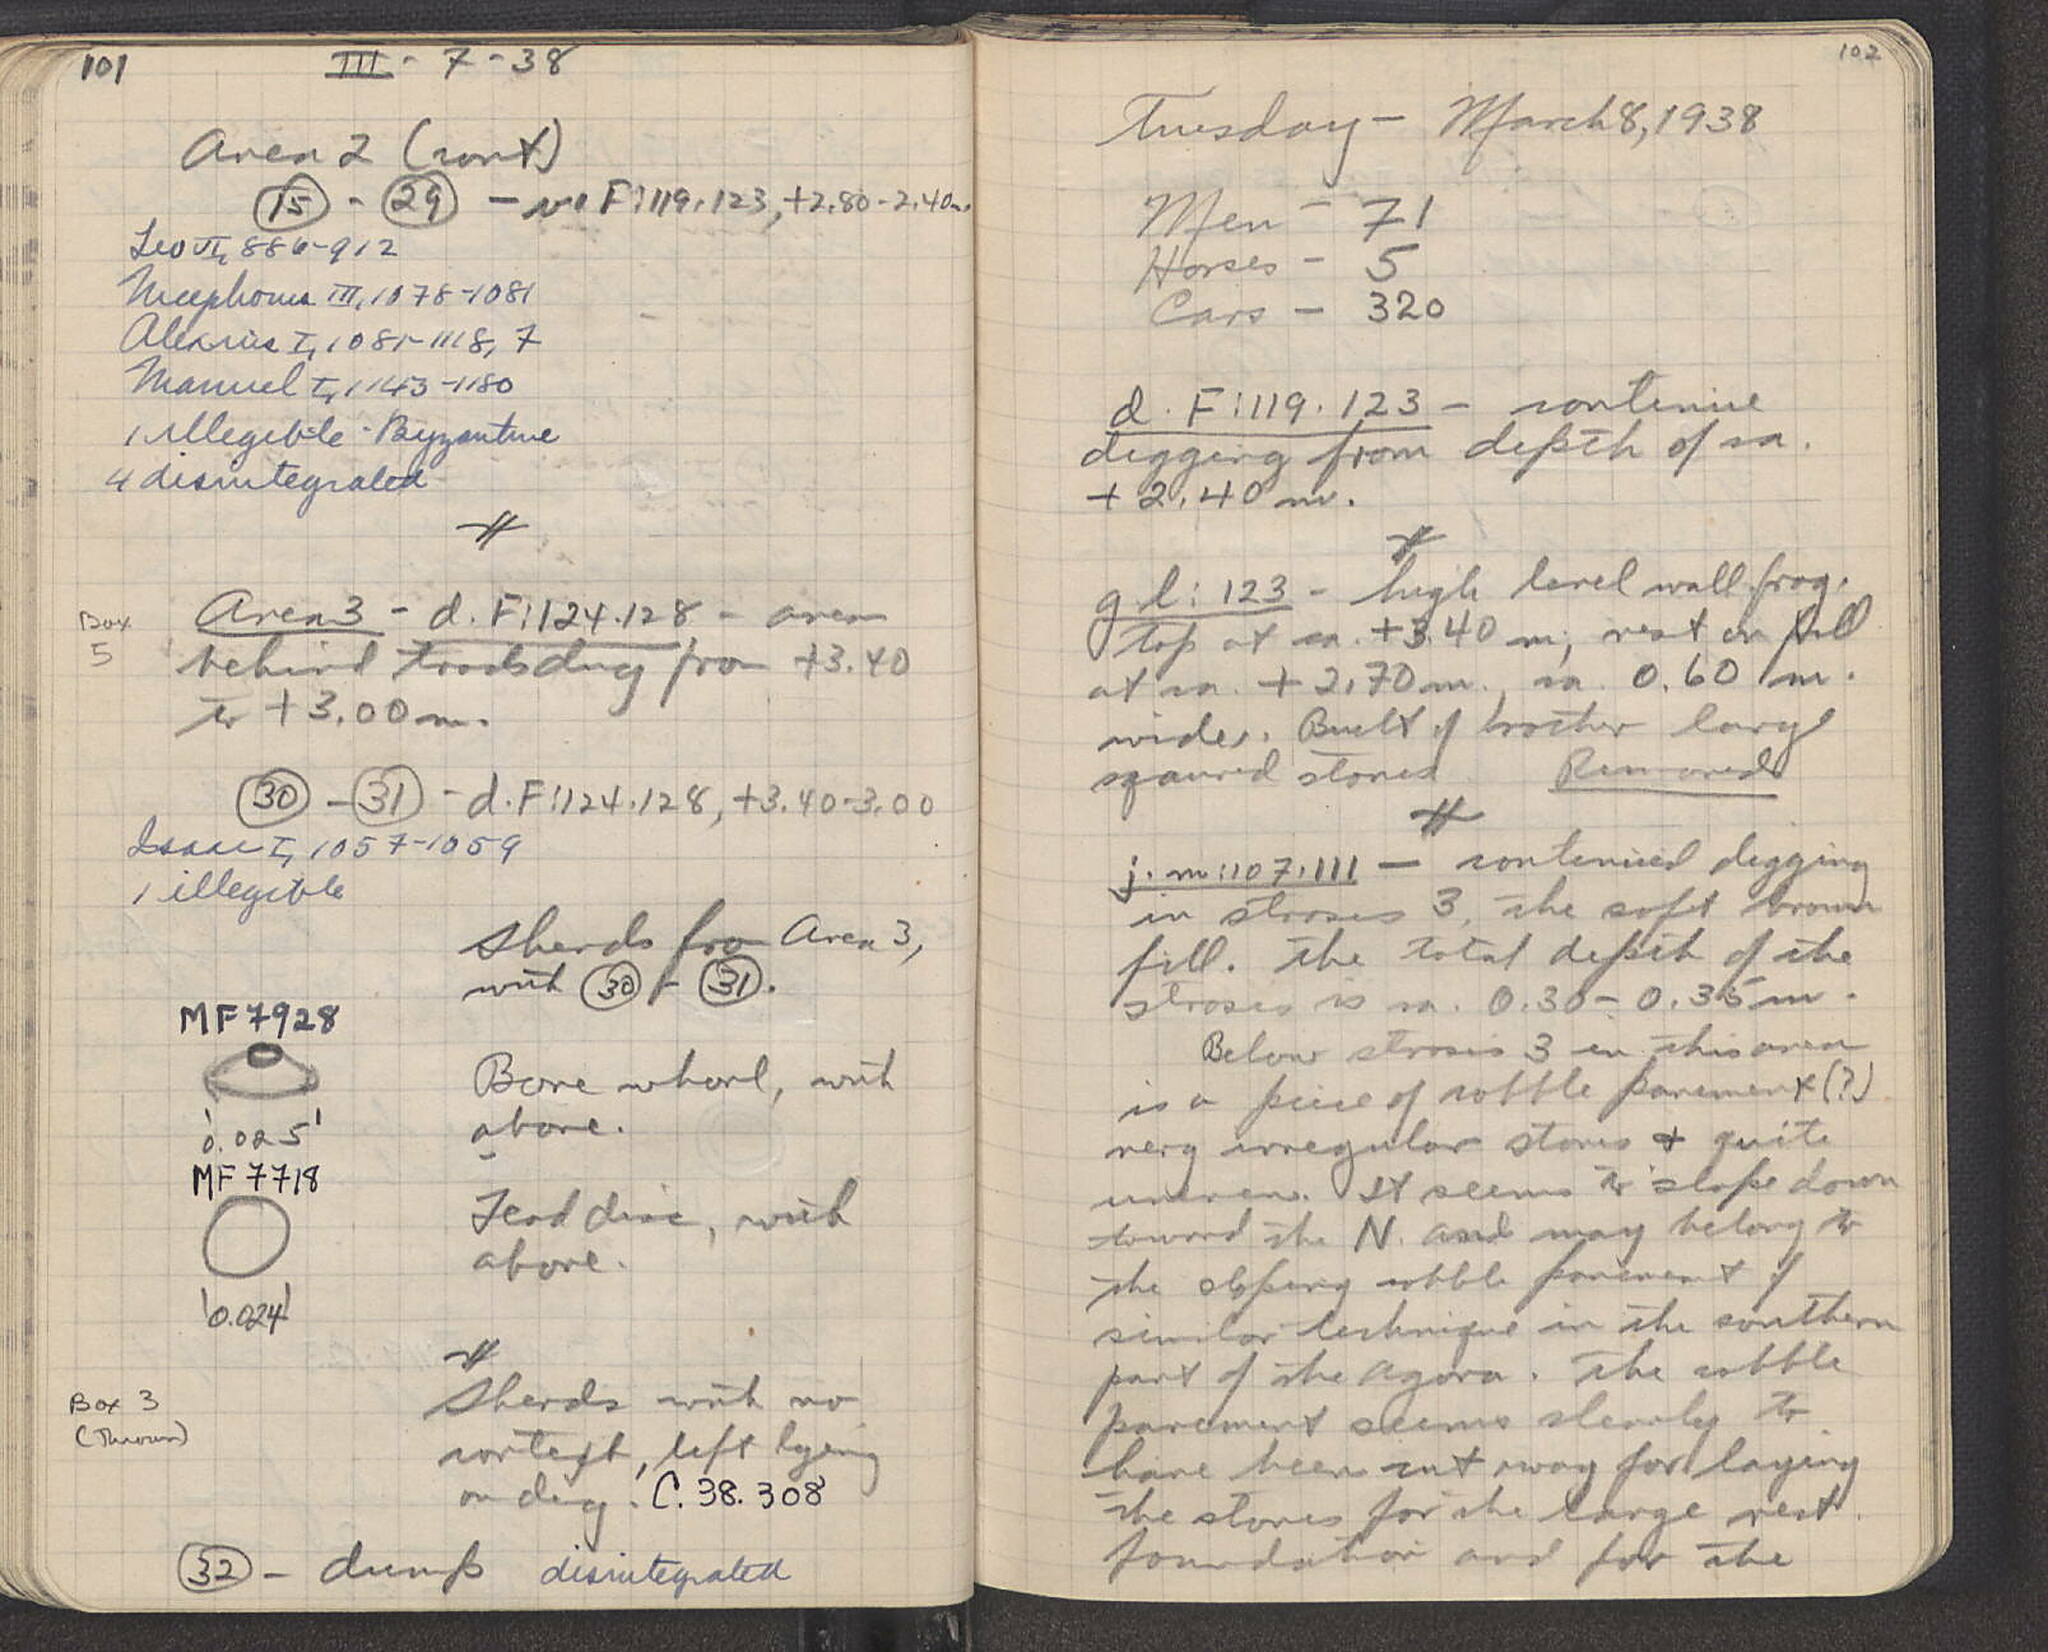 101
III - 7 - 38
Area 2 (cont)
15 - 29 - F:119.123, +2.80 - 2.40 m.
Leo VI, 886-912
Nicephorus III, 1078-1081
Alexius I, 1081-1118, 7
Manuel I, 1143-1180
1 illegible - Byzantine
4 disintegrated
Box
5
Area 3 - d.F:124.128 - area
behind dug from +3.40
to +3.00 m.
30 - 31 - d.F:124.128, +3.40-3.00
Isaac I, 1057-1059
1 illegible
Sherds from Area 3,
with 30 - 31.
MF 7928
Bone whorl, with
above.
0.025
MF 7718
Lead disc, with
above.
0.024
Box 3
(Thrown)
Sherds with no
context, left lying
on dig. C.38.308
32 - dump disintegrated
102
Tuesday - March 8, 1938
Men - 71
Horses - 5
Cars - 320
d.F:119.123 - continue
digging from depth of ca.
+ 2.40 m.
g l:123 - high level wall frag.
top at ca. +3.40 m, rest on fill
at ca. +2.70 m., ca. 0.60 m.
wide. Built of large
squared stones Removed
j.m:107.111 - continued digging
in stroses 3, the soft brown
fill. The total depth of the
stroses is ca. 0.30 - 0.35 m.
Below strosis 3 in this area
is a piece of cobble pavement (?)
very irregular stones & quite
uneven. It seems to slope down
toward the N. and may belong to
the sloping cobble pavement of
similar technique in the southern
part of the Agora. The cobble
pavement seems clearly to
have been cut away for laying
the stones for the large rect.
foundation and for the